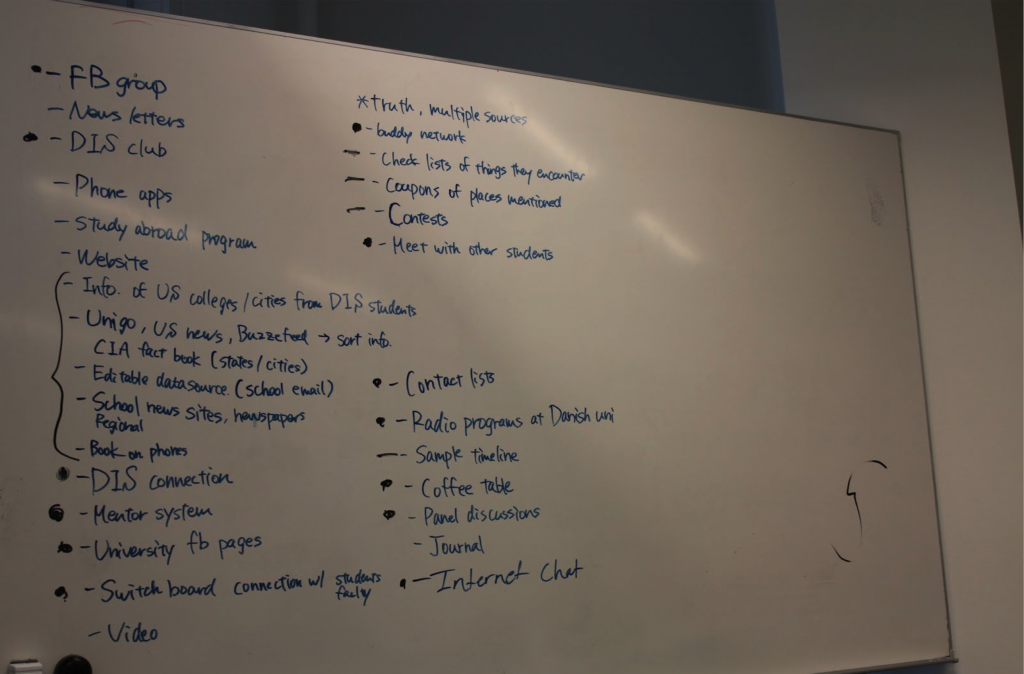 - FB group
- News letters
- DIS club
- Phone apps
- Study abroad program
- Website
- Info. of US colleges/cities from DIS students
- Unigo, US news, Buzzefeed → sort info.
CIA fact book (states/cities)
- Editable datasource. (school email)
- School news sites, newspapers
Regional
- Book on phones
- DIS connection
- Mentor system
- University fb pages
- Switch board connection w/ students
faculty
- Video
*truth, multiple sources
- buddy network
- Check lists of things they encounter
- Coupons of places mentioned
- Contests
- Meet with other students
- Contact lists
- Radio programs at Danish uni
- Sample timeline
- Coffee table
- Panel discussions
- Journal
- Internet Chat